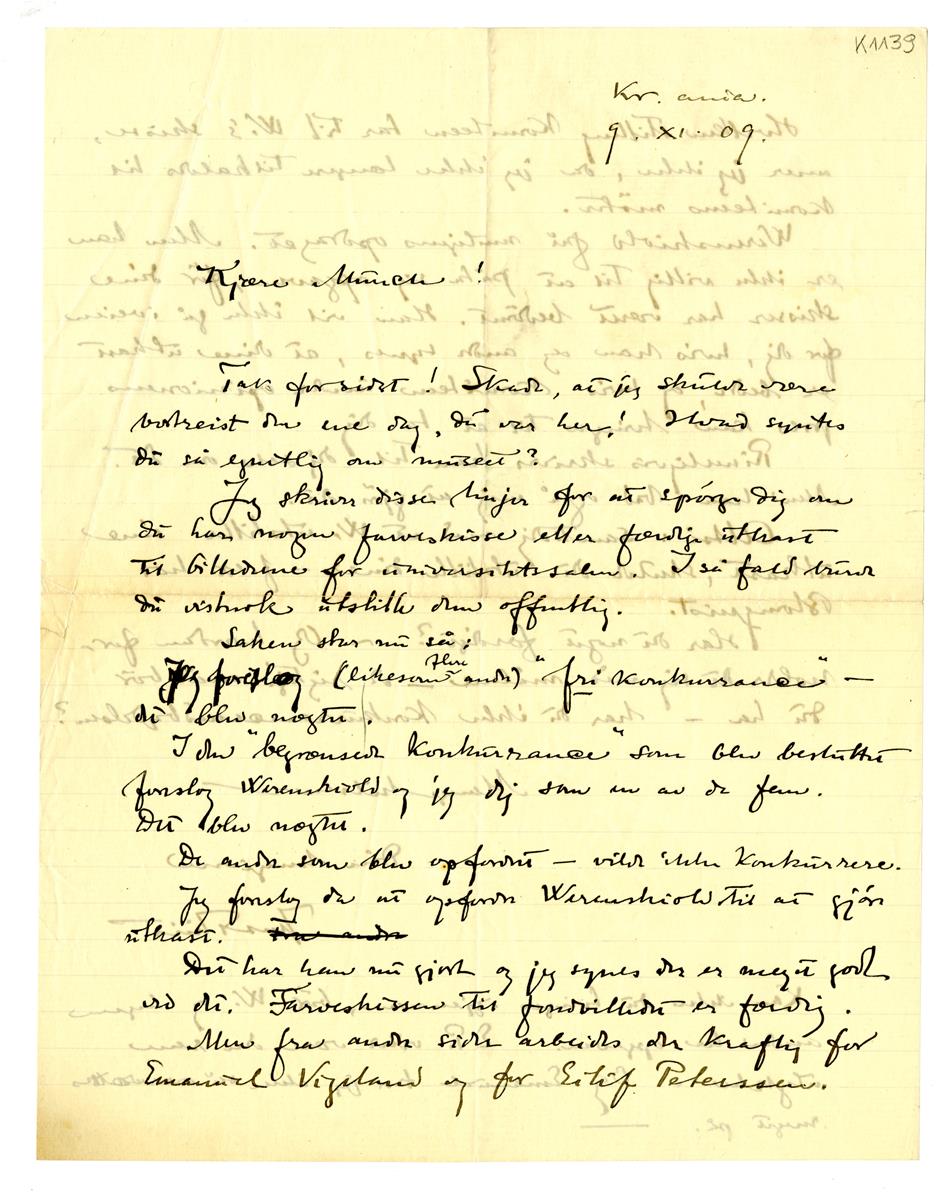 K1139
Kr.ania.
9. XI. 09.
Kjære Munch!
Tak for sidst! Skade, at jeg skulde være
bortreist den ene dag, du var her! Hvad syntes
du så egentlig om museet?
Jeg skriver disse linjer for at spørge dig om
du har nogen farveskisse eller færdige utkast
til billederne for universitetssalen. I så fald burde
du vistnok utstille dem offentlig.
Saken står nu så:
Jeg foreslog (likesom flere andre) "fri konkurrance" —
det blev nægtet.
I den "begrænsede konkurrance" som blev besluttet
foreslog Werenskiold og jeg dig som en av de fem.
Det blev nægtet.
De andre som blev opfordret — vilde ikke konkurrere.
Jeg foreslog da at opfordre Werenskiold til at gjøre
utkast. Fra andre
Det har han nu gjort og jeg synes der er meget godt
ved det. Farveskissen til fondbilledet er færdig.
Men fra andre sider arbeides der kraftig for
Emanuel Vigeland og for Eilif Peterssen.